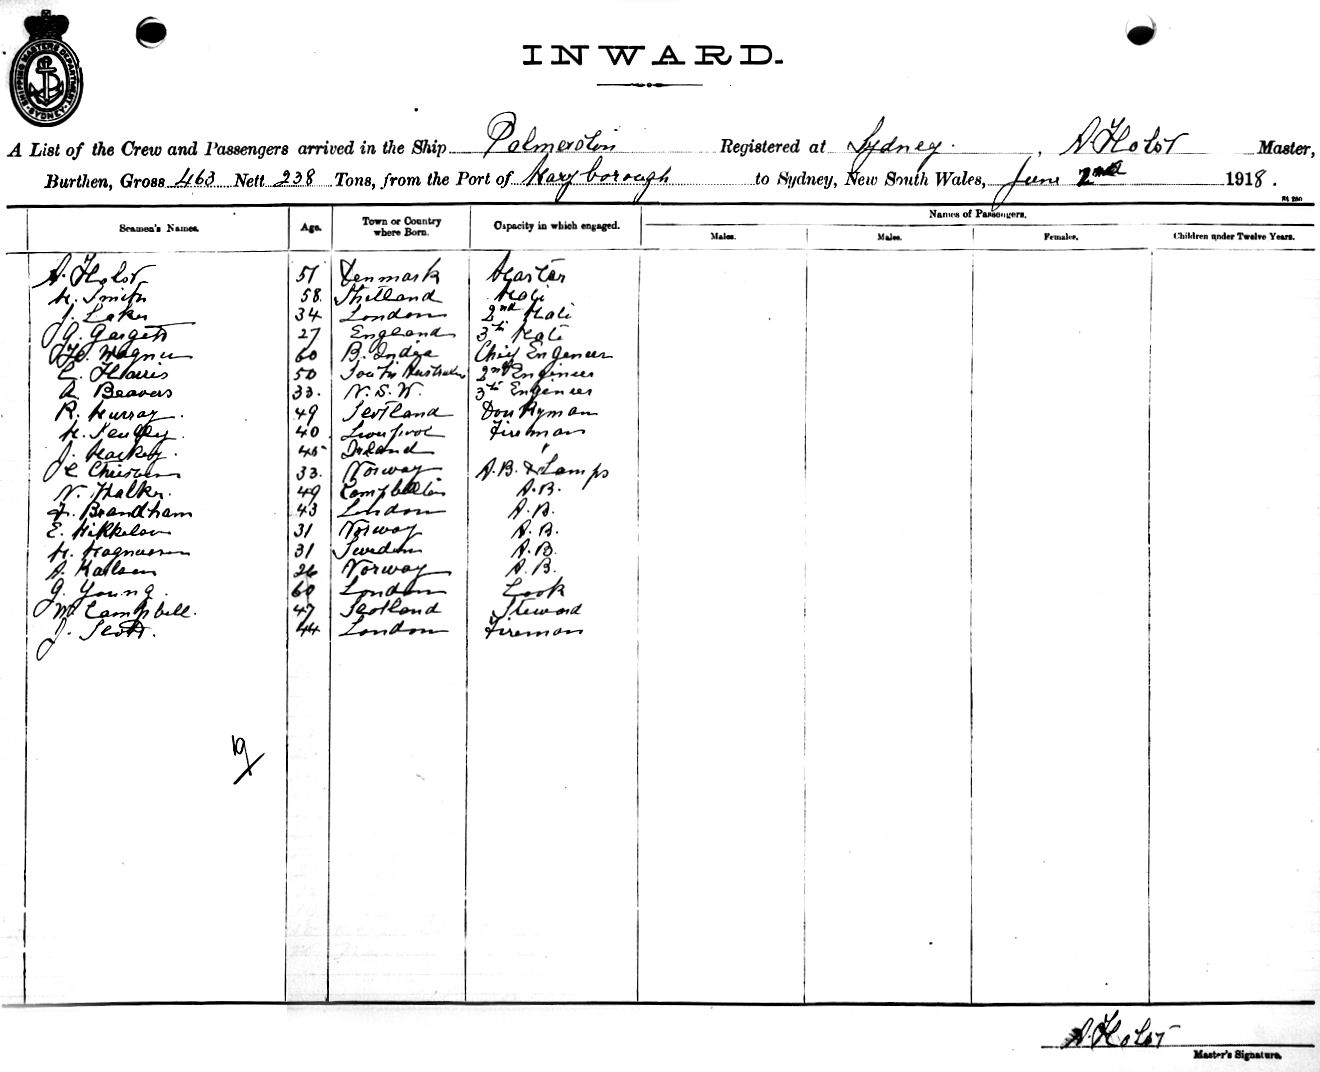 SHIPPING MASTERS DEPARTMENT SYDNEY
INWARD.
A List of the Crew and Passengers arrived in the Ship Palmerston Registered at Sydney. , A Holst Master,
Burthen, Gross 463 Nett 238 Tons, from the Port of Maryborough to Sydney, New South Wales, June 2nd 1918.
Seamen's Names. Age. Town or Country where Born. Capacity in which engaged. Names of Passengers.
Males. Males. Females. Children under Twelve Years.
A. Holst 51 Denmark Master
H. Smith 58 Shetland Mate
J. Laker 34 London 2nd Mate
G. Gargett 27 England 3rd Mate
H. Wagner 60 B. India Chief Engineer
C. Harris 50 South Australia 2nd Engineer
A. Beavers 33. N.S.W. 3rd Engineer
R. Murray 49 Scotland Donkyman
40 Liverpool Fireman
J. Mackey. 45 Ireland "
Christensen 33. Norway A.B. & Lamps
N. Walker. 49 Campbelton A.B.
Brandham 43 London A.B.
E. Mikkelsen 31 Norway A.B.
H. Magnussen 31 Sweden A.B.
A. Karlsen 26 Norway A.B.
G. Young. 60 London Cook
W. Campbell. 47 Scotland Steward
J. Scott. 44 London Fireman
19
A. Holst
Master's Signature.